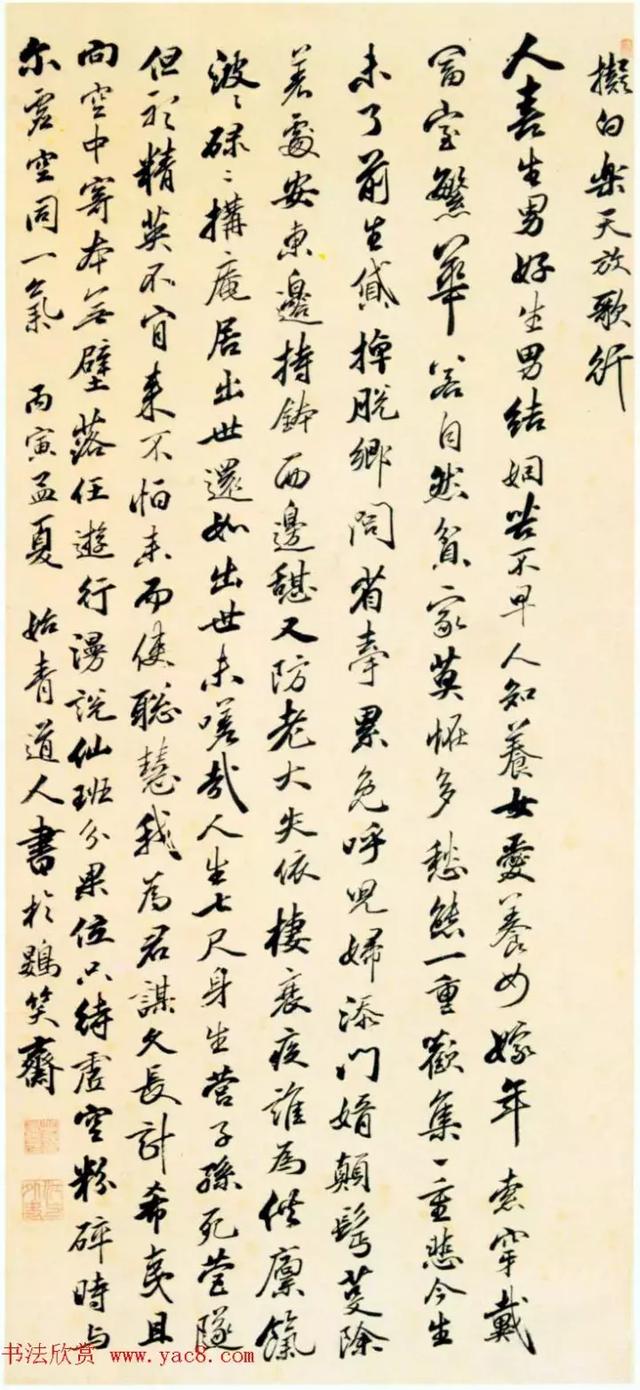 擬白樂天放歌行
人喜生男好生男結姻苦不早人知養女愛養女嫁年索穿戴
富室繁華若自然貧家莫怪多愁態一重歡集一重悲今生
未了前生債掉脫鄉閭省牽累免呼兒婦添門婿顛髩蔓除
若處安東邊持鉢西邊憇又防老大失依棲衰疫誰為供廩餼
波〻碌〻搆庵居出世還如出世未嗟哉人生七尺身生營子孫死營隧
但形精英不肯來不怕未而使聰慧我為君謀久長計希夷且
向空中寄本無壁落任遊行漫說仙班分果位只待虛空粉碎時與
尔虛空同一氣 丙寅孟夏 始青道人書於鷃笑齋
书法欣赏 www.yac8.com